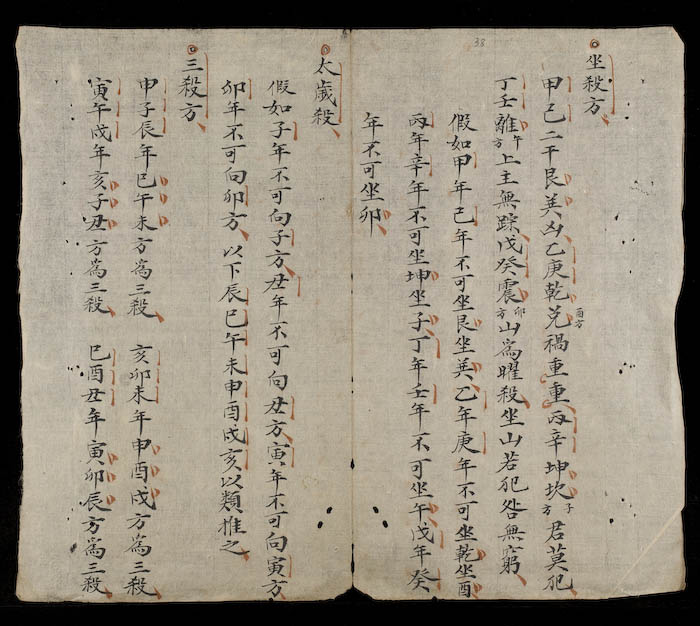 38
坐殺方
甲己二干艮巽凶乙庚乾兌酉方禍重重丙辛坤坎子方君莫犯
丁壬離午方上主無踪戊癸震卯方山為曜殺坐山若犯咎無窮
假如甲年己年不可坐艮坐巽乙年庚年不可坐乾坐酉
丙年辛年不可坐坤坐子丁年壬年不可坐午戊年癸
年不可坐卯
太歲殺
假如子年不可向子方丑年不可向丑方寅年不可向寅方
卯年不可向卯方以下辰巳午未申酉戌亥以類推之
三殺方
申子辰年巳午未方為三殺 亥卯未年申酉戌方為三殺
寅午戌年亥子丑方為三殺 巳酉丑年寅卯辰方為三殺